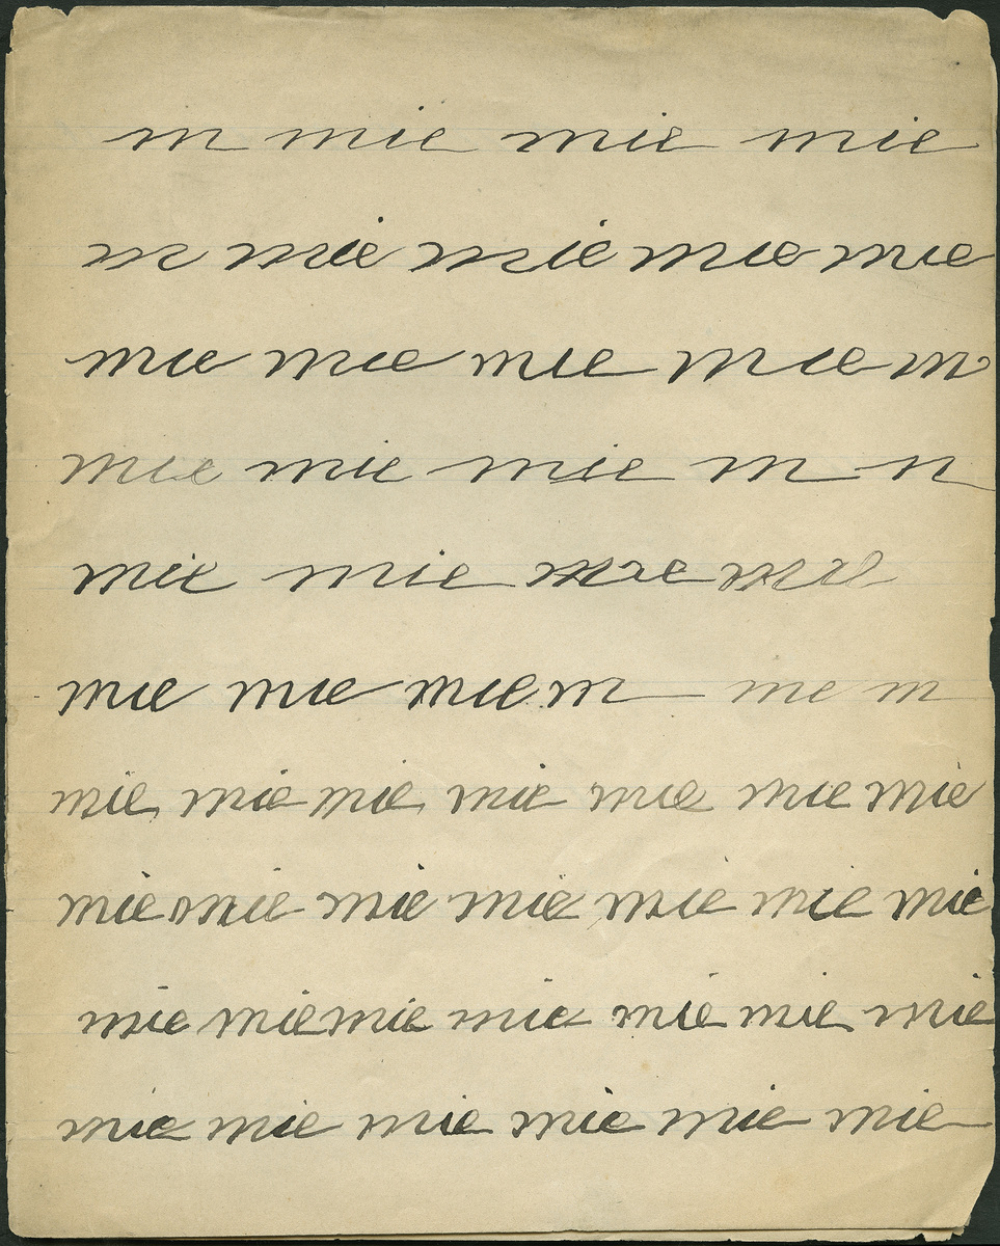 m mie mie mie
m mie mie mie mie
mie mie mie mie m
mie mie mie m n
mie mie mie mie
mie mie mie m me m
mie mie mie mie mie mie mie
mie mie mie mie mie mie mie
mie mie mie mie mie mie mie
mie mie mie mie mie mie